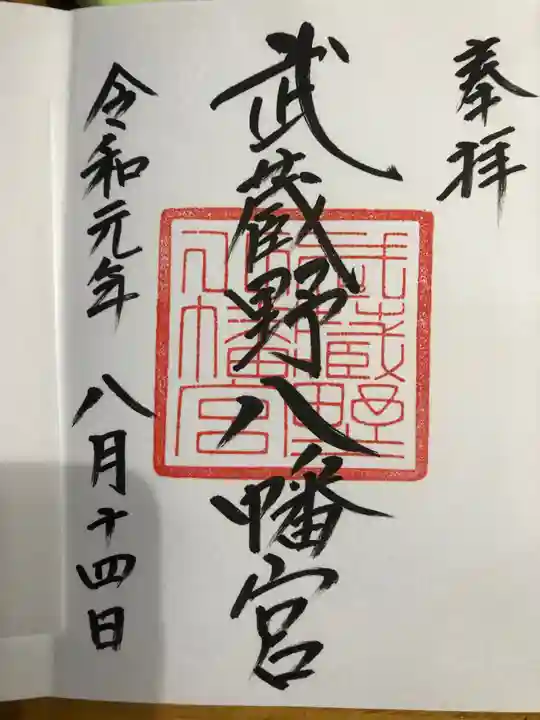 奉拝
武蔵野八幡宮
令和元年 八月十四日
武蔵野
八幡宮